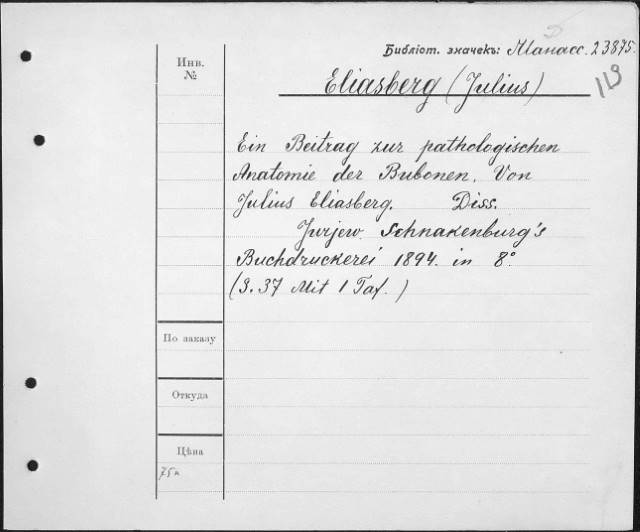 Библіот. значекъ: Манасс. 23875.
Инв.
№
Eliasberg (Julius)
113
Ein Beitrag zur pathologischen
Anatomie der Bubonen. Von
Julius Eliasberg. Diss.
Jurjew. Schnakenburg's
Buchdruckerei 1894. in 8°
(S. 37 Mit 1 Taf.)
По заказу
Откуда
Цѣна
75к